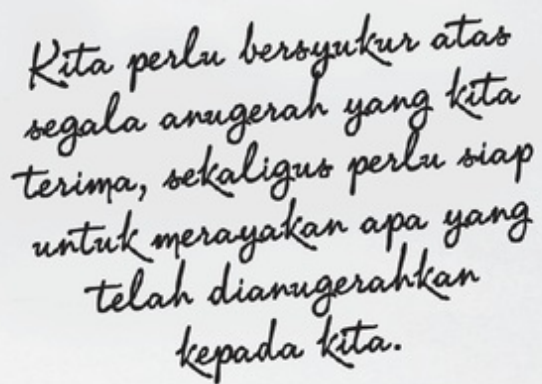 Kita perlu bersyukur atas
segala anugerah yang kita
terima, sekaligus perlu siap
untuk merayakan apa yang
telah dianugerahkan
kepada kita.